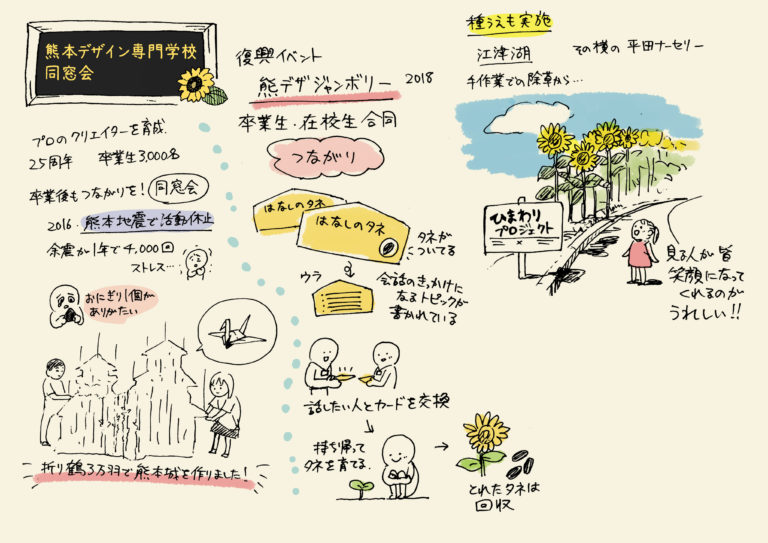 熊本デザイン専門学校
同窓会
プロのクリエイターを育成
25周年 卒業生3,000名
卒業後もつながりを! 同窓会
2016 熊本地震で活動休止
余震が1年で4,000回
ストレス…
おにぎり1個が
ありがたい
折り鶴3万羽で熊本城を作りました!
復興イベント
熊デザジャンボリー 2018
卒業生・在校生合同
つながり
はなしのタネ
はなしのタネ
タネが
ついてる
ウラ
会話のきっかけに
なるトピックが
書かれている
話したい人とカードを交換
持ち帰って
タネを育てる
とれたタネは
回収
種うえも実施
江津湖 その横の平田ナーセリー
手作業での除草から…
ひまわり
プロジェクト
見る人が皆
笑顔になって
くれるのが
うれしい!!